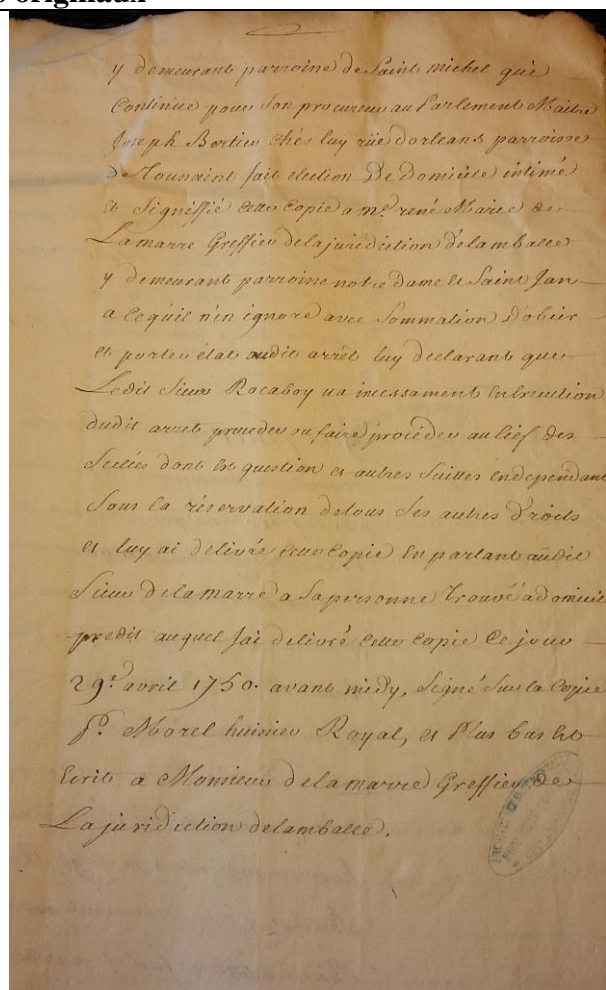 originaux
y demeurant parroisse de Saint michel qui
Continüe pour son procureur au Parlement Maitre
Joseph Bertier chés luy rüe dorleans parroisse
de Toussaint fait election De Domicile intimé
et signiffié cette Copie a mr. rené Marie de
Lamarre Greffier delajuridiction delamballe
y demeurant parroisse notre Dame et Saint Jan
a Cequil n'en ignore avec Sommation d'obeir
et porter état audit arrêt luy declarant que
Ledit Sieur Rocaboy va incessament En Execution
dudit arrest proceder ou faire proceder au lief des
scellés dont Est question et autres suittes endependant
sous la réservation detous ses autres droits
et luy ai delivré cette copie En parlant audit
Sieur Delamarre a sapersonne trouvé adomicile
predit auquel jai delivré cette copie Ce jour
29e. avril 1750. avant midy, signé sur la Copie
Morel huissier Royal, et Plus bas Est
Ecrit a Monsieur delamarre Greffier de
Lajuridiction delamballe.